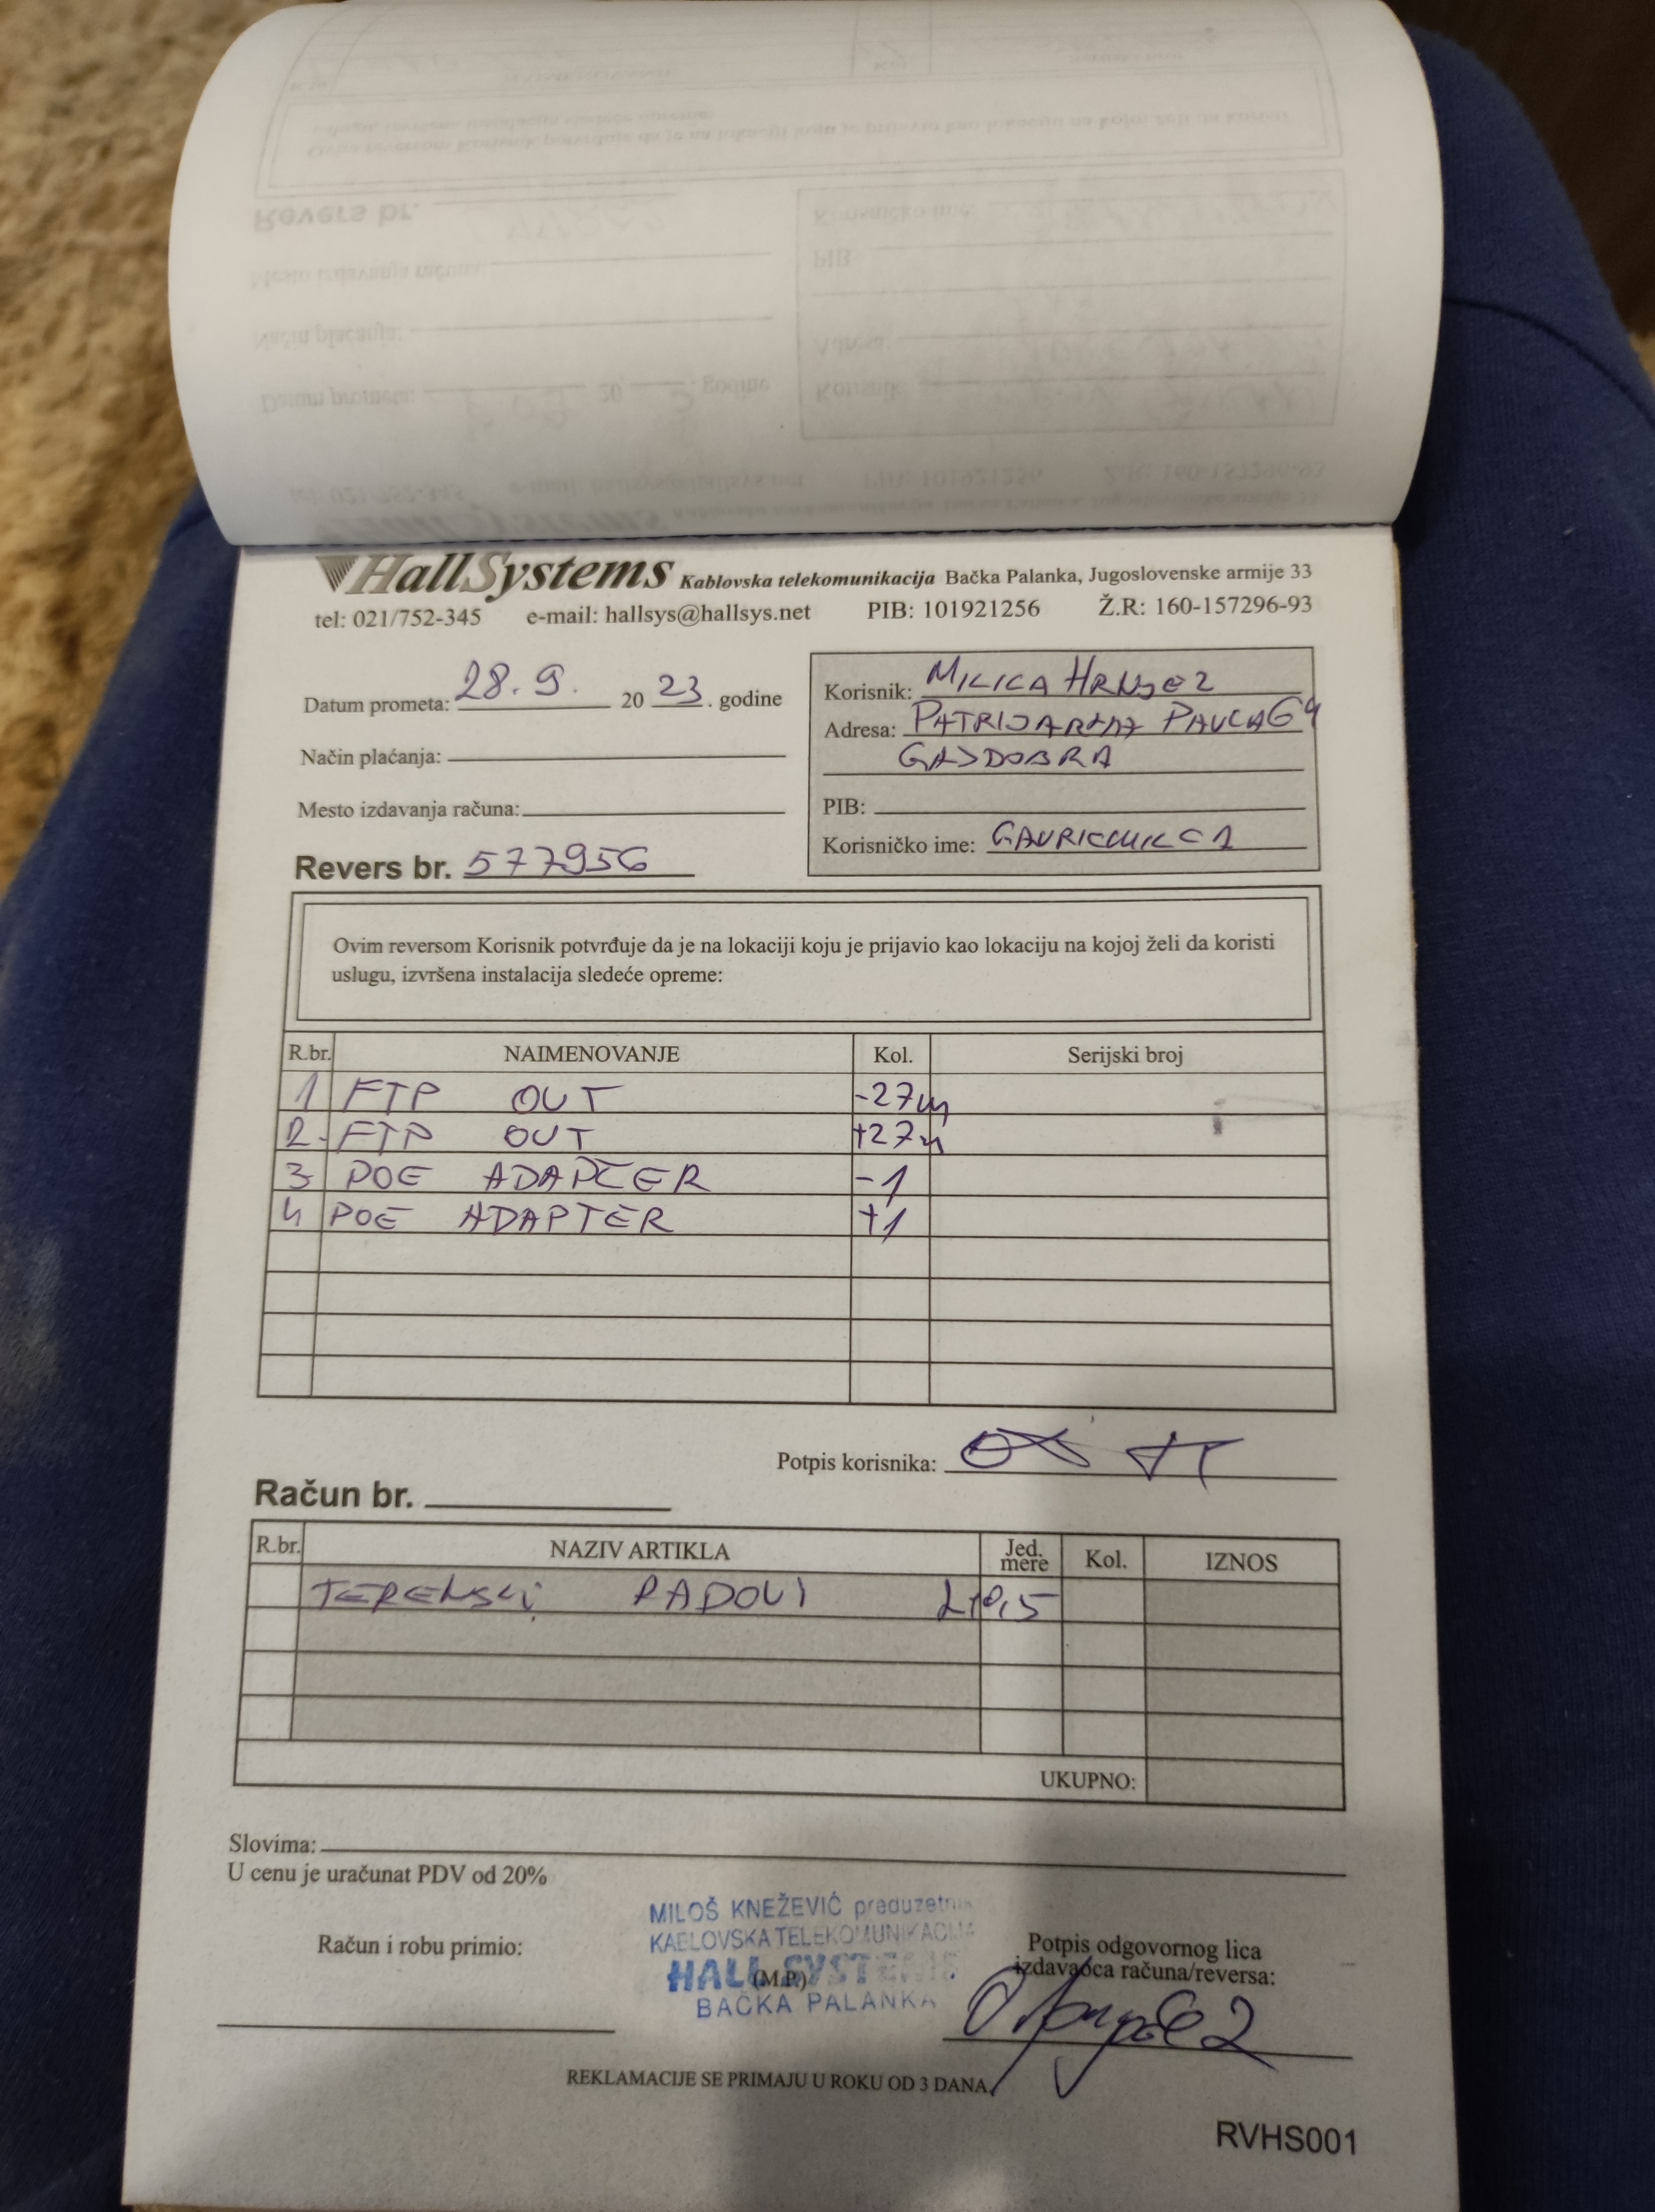 HallSystems Kablovska telekomunikacija Bačka Palanka, Jugoslovenske armije 33
tel: 021/752-345 e-mail: hallsys@hallsys.net PIB: 101921256 Ž.R: 160-157296-93
Datum prometa: 28.9. 20 23. godine
Način plaćanja:
Mesto izdavanja računa:
Revers br. 577956
Korisnik: MILICA
Adresa: PATRIJARHA PAVLA 64
GAJDOBRA
PIB:
Korisničko ime:
Ovim reversom Korisnik potvrđuje da je na lokaciji koju je prijavio kao lokaciju na kojoj želi da koristi
uslugu, izvršena instalacija sledeće opreme:
R.br. NAIMENOVANJE Kol. Serijski broj
1 FTP OUT -27m
2. FTP OUT +27m
3 POE ADAPTER -1
4 POE ADAPTER +1
Potpis korisnika:
Račun br.
R.br. NAZIV ARTIKLA Jed. mere Kol. IZNOS
TERENSKI RADOVI
UKUPNO:
Slovima:
U cenu je uračunat PDV od 20%
Račun i robu primio:
MILOŠ KNEŽEVIĆ preduzetnik
KABLOVSKA TELEKOMUNIKACIJA
HALL SYSTEMS
(M.P.)
BAČKA PALANKA
Potpis odgovornog lica
izdavaoca računa/reversa:
REKLAMACIJE SE PRIMAJU U ROKU OD 3 DANA
RVHS001